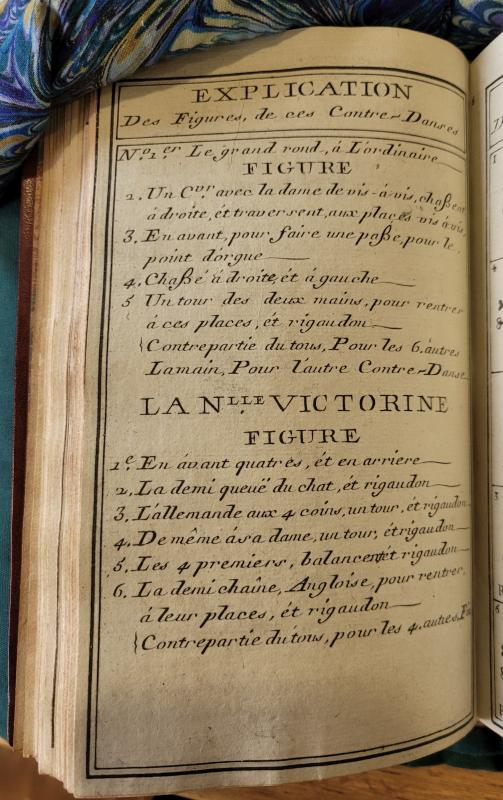 EXPLICATION
Des Figures, de ces Contre-Danses
No. 1.er Le grand rond, á L'ordinaire
FIGURE
2. Un Cver avec la dame de vis-á-vis, chaßent
á droite, ét traversent, aux places vis á vis,
3. En avant, pour faire une paße, pour le
point d'orgue
4. Chaßé á droite, ét á gauche
5 Un tour des deux mains, pour rentrer
á ces places, ét rigaudon
Contrepartie du tous, Pour les 6. autres
La main, Pour l'autre Contre-Danse
LA NLLE VICTORINE
FIGURE
1e. En ávant quatres, ét en arriere
2, La demi queuë du chat, ét rigaudon
3, L'allemande aux 4 coins, un tour, ét rigaudon
4. De même ásа dame, un tour, ét rigaudon
5. Les 4 premiers, balancent ét rigaudon
6. La demi chaîne, Angloise, pour rentrer,
á leur places, ét rigaudon
Contrepartie du tous, pour les 4. autres.